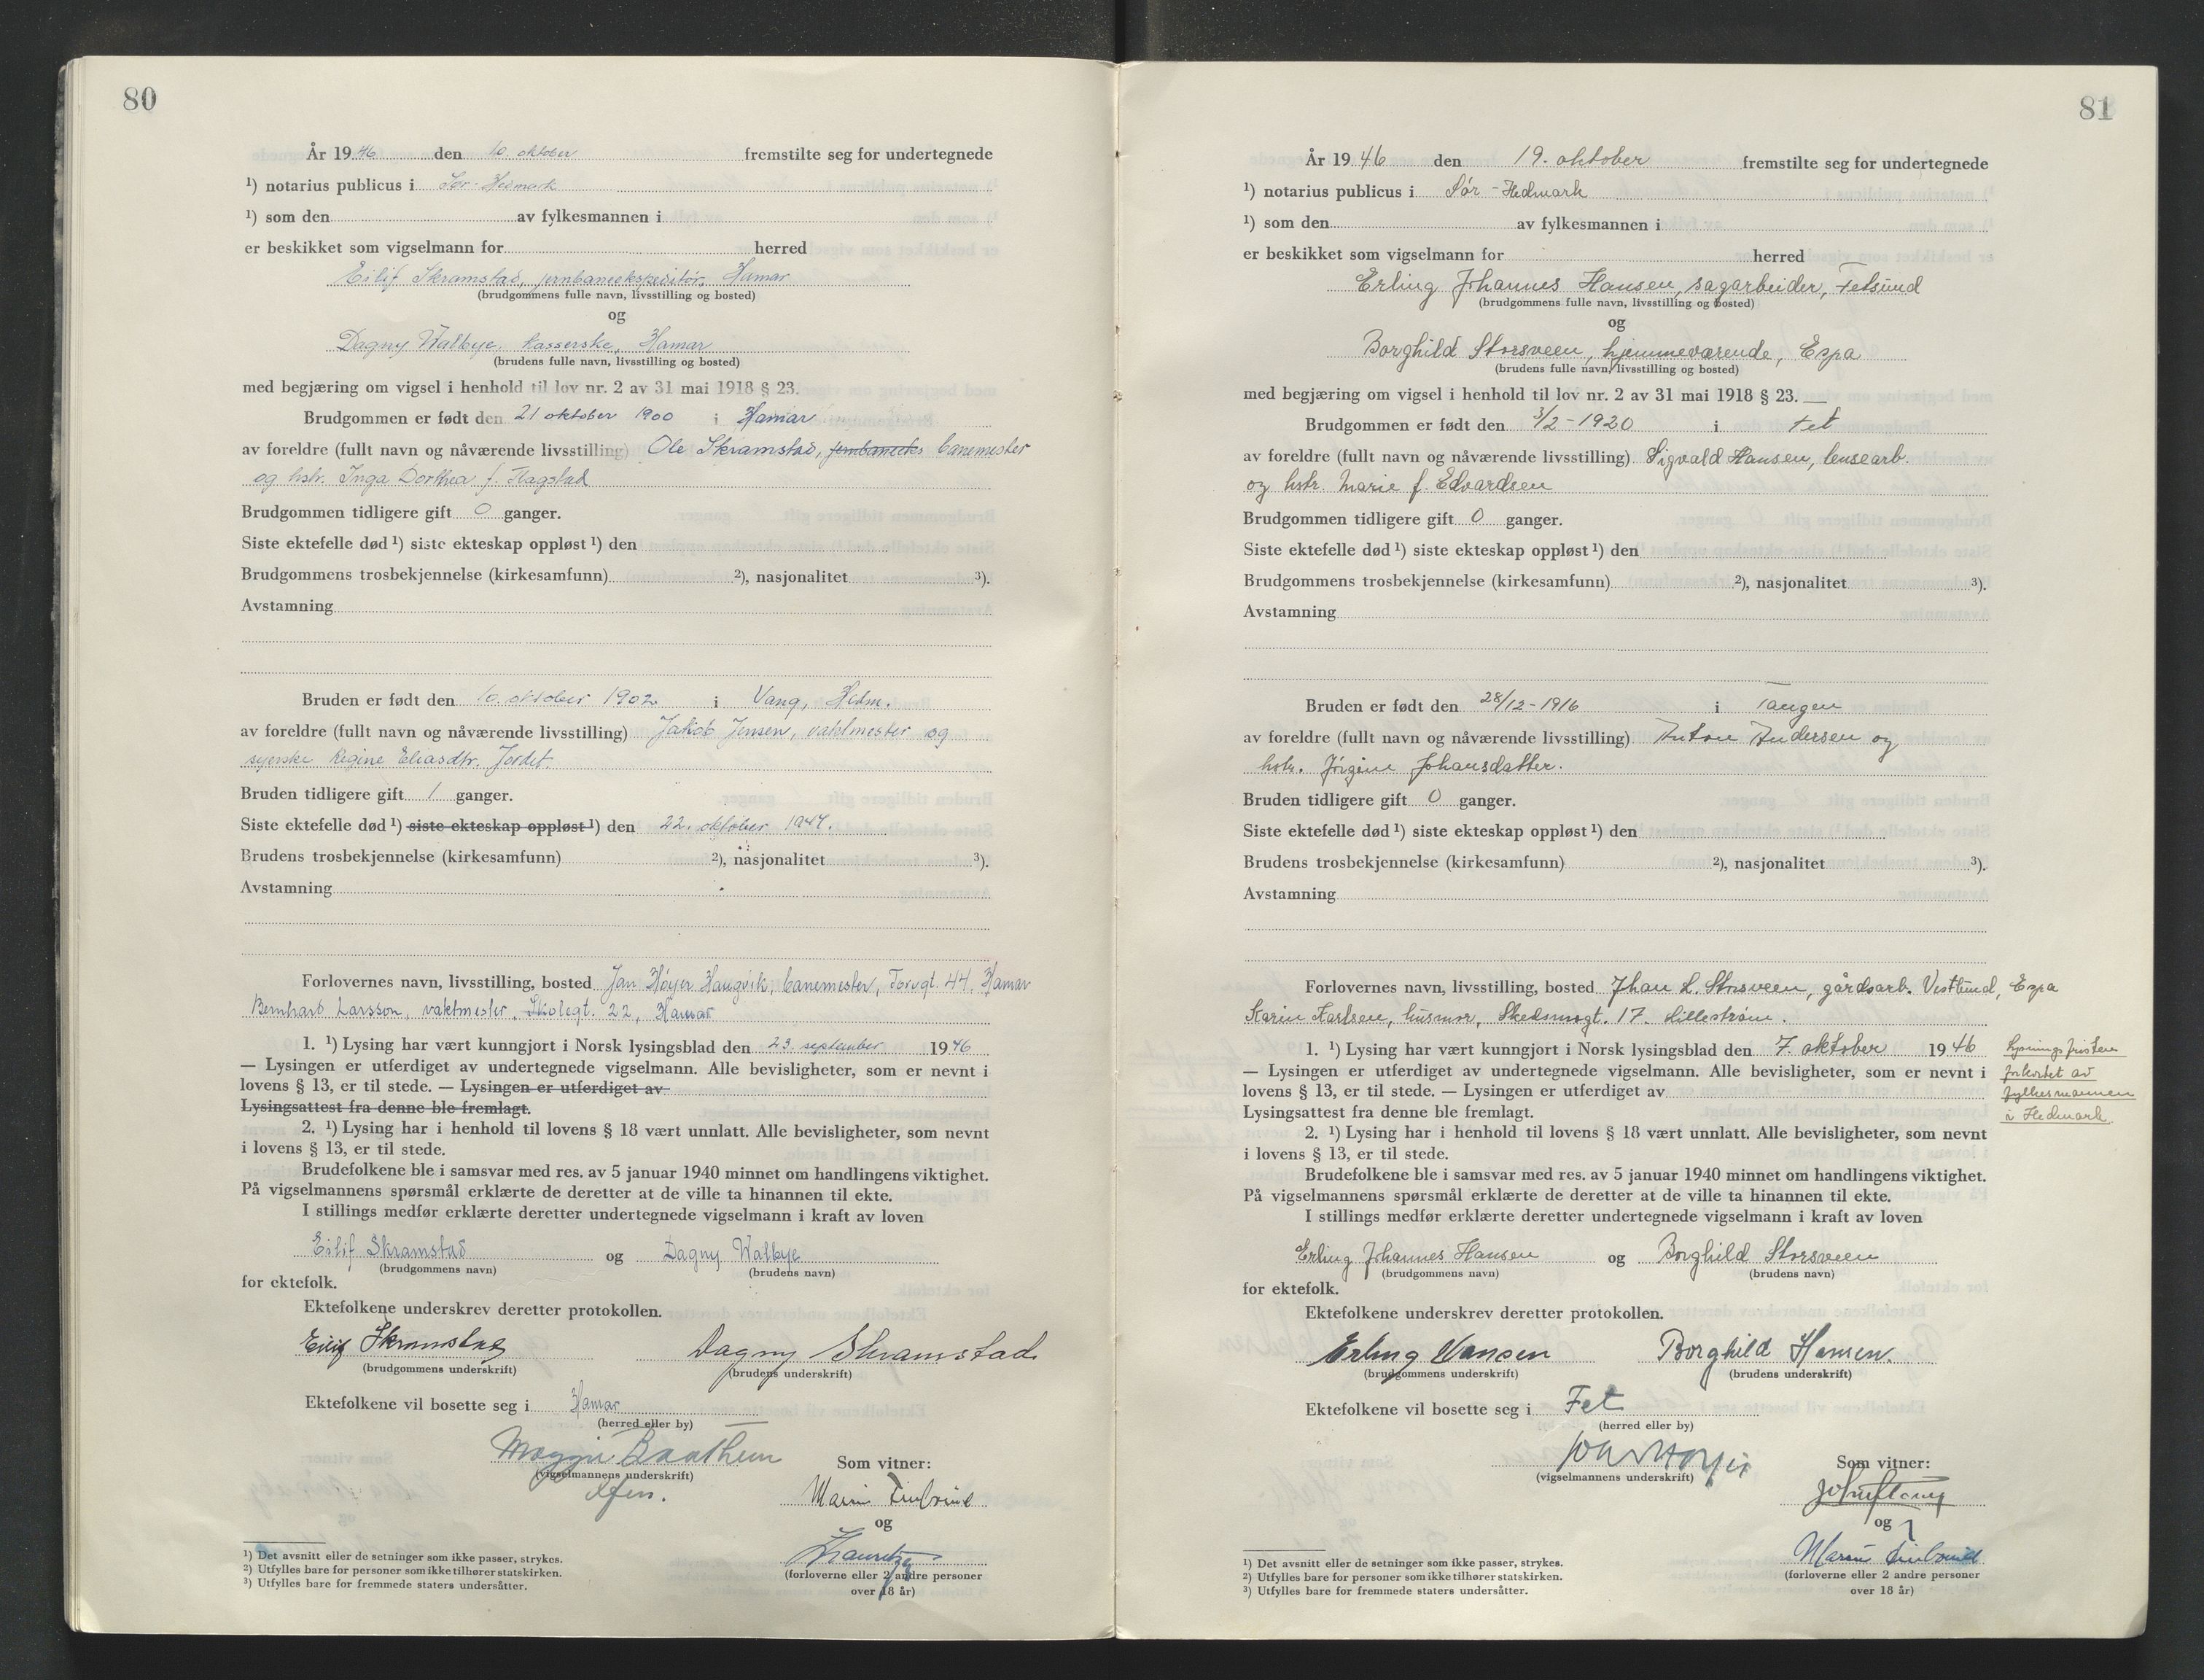 80
År 1946 den 10. oktober fremstilte seg for undertegnede
¹) notarius publicus i Sør-Hedmark
¹) som den av fylkesmannen i
er beskikket som vigselmann for herred
Eilif Skramstad, jernbaneekspeditør, Hamar
(brudgommens fulle navn, livsstilling og bosted)
og
Dagny Walbye, kasserske, Hamar
(brudens fulle navn, livsstilling og bosted)
med begjæring om vigsel i henhold til lov nr. 2 av 31 mai 1918 § 23.
Brudgommen er født den 21 oktober 1900 i Hamar
av foreldre (fullt navn og nåværende livsstilling) Ole Skramstad, banemester
og hstr. Inga Dorthea f. Flagstad
Brudgommen tidligere gift 0 ganger.
Siste ektefelle død ¹) siste ekteskap oppløst ¹) den
Brudgommens trosbekjennelse (kirkesamfunn) ²), nasjonalitet ³).
Avstamning
Bruden er født den 10. oktober 1902 i Vang, Hedm.
av foreldre (fullt navn og nåværende livsstilling) Jakob Jensen, vaktmester og
syerske Regine Eliasdtr. Jordet.
Bruden tidligere gift 1 ganger.
Siste ektefelle død ¹) siste ekteskap oppløst ¹) den 22. oktober 1944.
Brudens trosbekjennelse (kirkesamfunn) ²), nasjonalitet ³).
Avstamning
Forlovernes navn, livsstilling, bosted Jan Høyer Haugvik, banemester, Torvgt. 44, Hamar
Bernhard Larsson, vaktmester, Skolegt. 22, Hamar
1. ¹) Lysing har vært kunngjort i Norsk lysingsblad den 23. september 1946
— Lysingen er utferdiget av undertegnede vigselmann. Alle bevisligheter, som er nevnt i
lovens § 13, er til stede. — Lysingen er utferdiget av
Lysingsattest fra denne ble fremlagt.
2. ¹) Lysing har i henhold til lovens § 18 vært unnlatt. Alle bevisligheter, som nevnt
i lovens § 13, er til stede.
Brudefolkene ble i samsvar med res. av 5 januar 1940 minnet om handlingens viktighet.
På vigselmannens spørsmål erklærte de deretter at de ville ta hinannen til ekte.
I stillings medfør erklærte deretter undertegnede vigselmann i kraft av loven
Eilif Skramstad og Dagny Walbye
(brudgommens navn) (brudens navn)
for ektefolk.
Ektefolkene underskrev deretter protokollen.
Eilif Skramstad Dagny Skramstad
(brudgommens underskrift) (brudens underskrift)
Ektefolkene vil bosette seg i Hamar
(herred eller by)
Baathem
(vigselmannens underskrift)
Som vitner:
og
(forloverne eller 2 andre personer
over 18 år)
¹) Det avsnitt eller de setninger som ikke passer, strykes.
²) Utfylles bare for personer som ikke tilhører statskirken.
³) Utfylles bare for fremmede staters undersåtter.
81
År 1946 den 19. oktober fremstilte seg for undertegnede
¹) notarius publicus i Sør-Hedmark
¹) som den av fylkesmannen i
er beskikket som vigselmann for herred
Erling Johannes Hansen, sagarbeider, Fetsund
(brudgommens fulle navn, livsstilling og bosted)
og
Borghild Storsveen, hjemmeværende, Espa
(brudens fulle navn, livsstilling og bosted)
med begjæring om vigsel i henhold til lov nr. 2 av 31 mai 1918 § 23. —
Brudgommen er født den 3/2-1920 i Fet
av foreldre (fullt navn og nåværende livsstilling) Sigvald Hansen, lensearb.
og hstr. Marie f. Edvardsen
Brudgommen tidligere gift 0 ganger.
Siste ektefelle død ¹) siste ekteskap oppløst ¹) den
Brudgommens trosbekjennelse (kirkesamfunn) ²), nasjonalitet ³).
Avstamning
Bruden er født den 28/12-1916 i Tangen
av foreldre (fullt navn og nåværende livsstilling) Anton Andersen og
hstr. Jørgine Johansdatter.
Bruden tidligere gift 0 ganger.
Siste ektefelle død ¹) siste ekteskap oppløst ¹) den
Brudens trosbekjennelse (kirkesamfunn) ²), nasjonalitet ³).
Avstamning
Forlovernes navn, livsstilling, bosted Johan L. Storsveen, gårdsarb. Vestlund, Espa
Karin Karlsen, husmor, Skedsmogt. 17. Lillestrøm.
1. ¹) Lysing har vært kunngjort i Norsk lysingsblad den 7. oktober 1946
— Lysingen er utferdiget av undertegnede vigselmann. Alle bevisligheter, som er nevnt i
lovens § 13, er til stede. — Lysingen er utferdiget av
Lysingsattest fra denne ble fremlagt.
Lysingsfristen
forkortet av
fylkesmannen
i Hedmark
2. ¹) Lysing har i henhold til lovens § 18 vært unnlatt. Alle bevisligheter, som nevnt
i lovens § 13, er til stede.
Brudefolkene ble i samsvar med res. av 5 januar 1940 minnet om handlingens viktighet.
På vigselmannens spørsmål erklærte de deretter at de ville ta hinannen til ekte.
I stillings medfør erklærte deretter undertegnede vigselmann i kraft av loven
Erling Johannes Hansen og Borghild Storsveen
(brudgommens navn) (brudens navn)
for ektefolk.
Ektefolkene underskrev deretter protokollen.
Erling Hansen Borghild Hansen.
(brudgommens underskrift) (brudens underskrift)
Ektefolkene vil bosette seg i Fet
(herred eller by)
(vigselmannens underskrift)
Som vitner:
og
(forloverne eller 2 andre personer
over 18 år)
¹) Det avsnitt eller de setninger som ikke passer, strykes.
²) Utfylles bare for personer som ikke tilhører statskirken.
³) Utfylles bare for fremmede staters undersåtter.